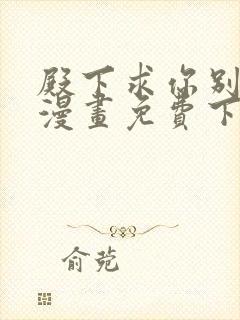 殿下求你别
漫畫免費下
俞菀